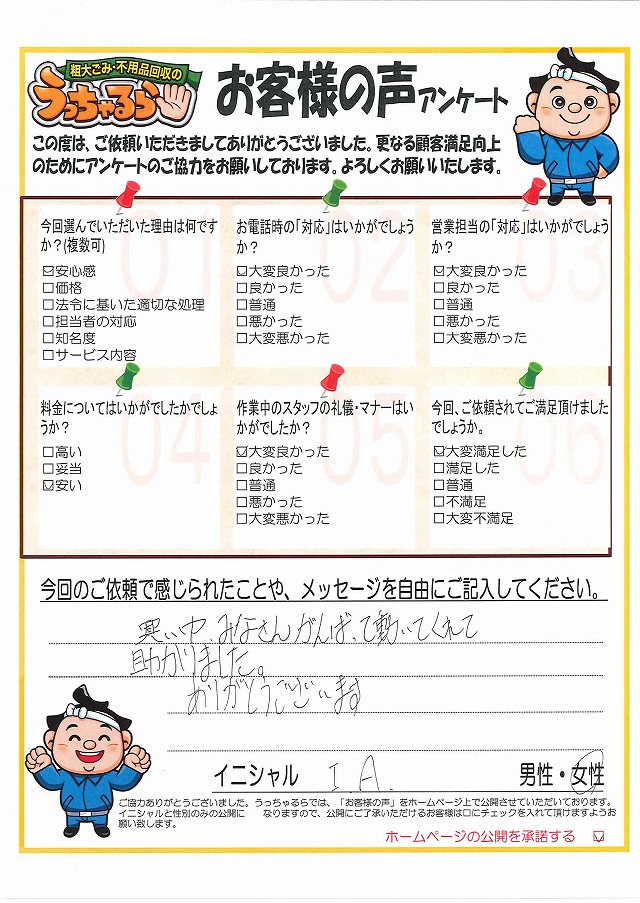 粗大ごみ・不用品回収の
うっちゃるら
お客様の声アンケート
この度は、ご依頼いただきましてありがとうございました。更なる顧客満足向上
のためにアンケートのご協力をお願いしております。よろしくお願いいたします。
01
今回選んでいただいた理由は何です
か？(複数可)
☑安心感
□価格
□法令に基いた適切な処理
□担当者の対応
□知名度
□サービス内容
02
お電話時の「対応」はいかがでしょう
か？
☑大変良かった
□良かった
□普通
□悪かった
□大変悪かった
03
営業担当の「対応」はいかがでしょう
か？
☑大変良かった
□良かった
□普通
□悪かった
□大変悪かった
04
料金についてはいかがでしたかでしょ
うか？
□高い
□妥当
☑安い
05
作業中のスタッフの礼儀・マナーはい
かがでしたか？
☑大変良かった
□良かった
□普通
□悪かった
□大変悪かった
06
今回、ご依頼されてご満足頂けました
でしょうか。
☑大変満足した
□満足した
□普通
□不満足
□大変不満足
今回のご依頼で感じられたことや、メッセージを自由にご記入してください。
寒い中、みなさんがんばって動いてくれて
助かりました。
ありがとうございます
イニシャル I.A. 男性・女性
ご協力ありがとうございました。うっちゃるらでは、「お客様の声」をホームページ上で公開させていただいております。
イニシャルと性別のみの公開に　　なりますので、公開にご了承いただけるお客様は□にチェックを入れて頂けますようお
願い致します。
ホームページの公開を承諾する ☑